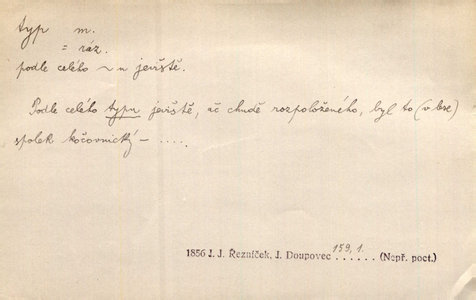 typ m.
= ráz.
podle celého ~ u jeviště.
Podle celého typu jeviště, ač chudě rozpoloženého, byl to (v bse)
spolek kočovnický — ....
1856 J. J. Řezníček, J. Doupovec 159,1. (Nepř. poct.)